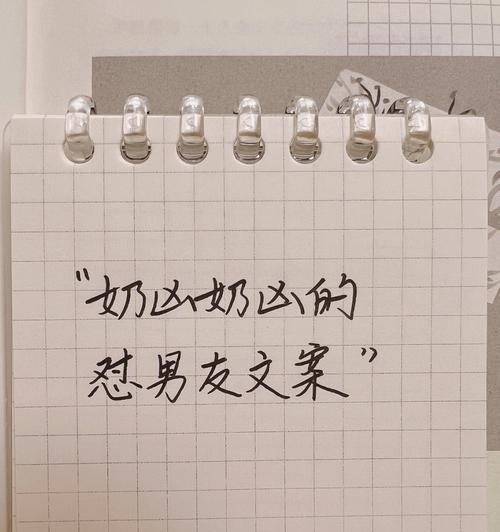 “奶凶奶凶的
怼男友文案”